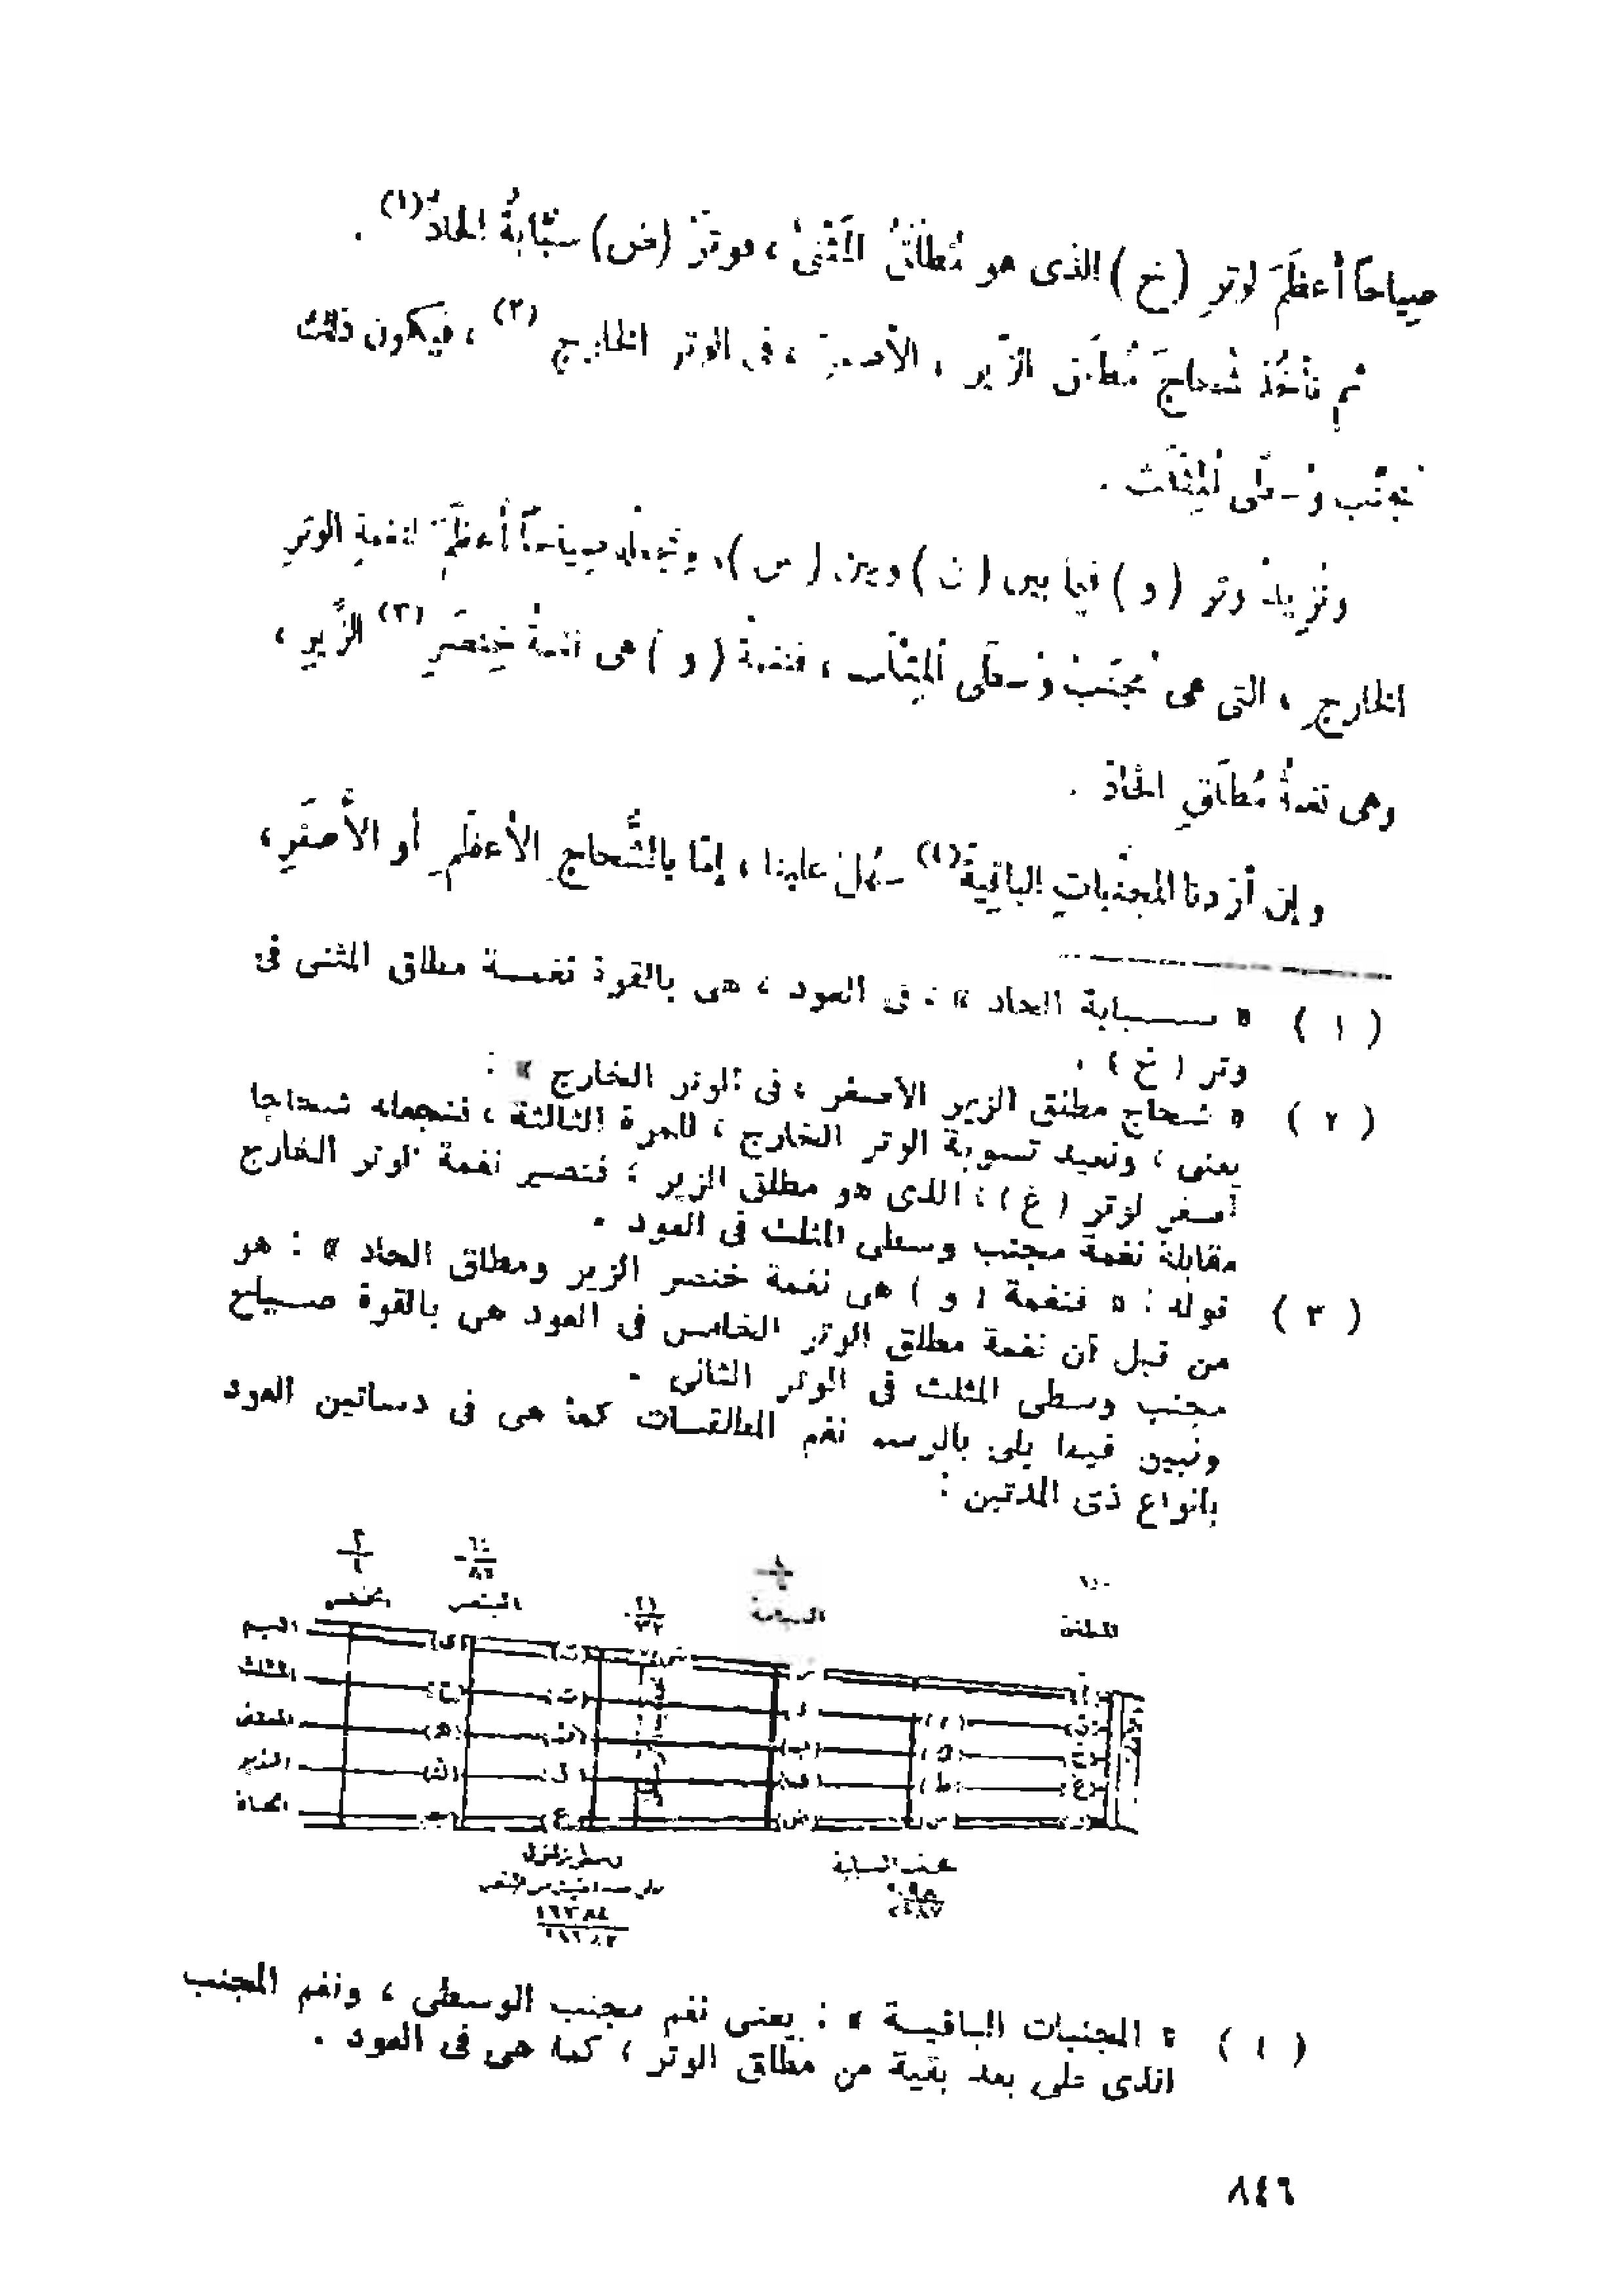 صياحًا أعظَمَ لوترِ (خ) الذى هو مُطلَقُ المَثْنَى ، فوترُ (ض) سبّابةُ الحادّ (١) .
ثم نأخُذ شُحاجَ مُطلَق الزّير ، الأصغرَ ، فى الوتر الخارج (٢) ، فيكون ذلك
مُجنَّب وُسطَى المِثلَث .
ونزيدُ وتر ( و ) فيما بين ( ن ) وبين ( س ) ، ونجعله صياحًا أعظَمَ لنغمةِ الوترِ
الخارجِ ، التى هى مُجنَّبُ وُسطَى المِثْلَث ، فنغمةُ ( و ) هى نغمةُ خِنصَرِ (٣) الزِّيرِ ،
وهى نغمةُ مُطلَقِ الحادّ .
وإن أردنا المجنَّباتِ الباقيةَ (٤) سهُل علينا ، إمّا بالشَّحاجِ الأعظَمِ أو الأصغَرِ ،
( ١ ) « سبابة الحاد » : فى العود ، هى بالقوة نغمة مطلق المثنى فى
وتر ( خ ) .
( ٢ ) « شحاج مطلق الزير الأصغر ، فى الوتر الخارج » :
يعنى ، ونعيد تسوية الوتر الخارج ، للمرة الثالثة ، فنجعله شحاجا
أصغر لوتر ( غ ) ، الذى هو مطلق الزير ، فتصير نغمة الوتر الخارج
مقابلة نغمة مجنب وسطى المثلث فى العود .
( ٣ ) قوله : « فنغمة ( و ) هى نغمة خنصر الزير ومطلق الحاد » : هو
من قبل أن نغمة مطلق الوتر الخامس فى العود هى بالقوة صياح
مجنب وسطى المثلث فى الوتر الثانى .
ونبين فيما يلى بالرسم نغم المطلقات كما هى فى دساتين العود
بأنواع ذى المدتين :
٣/٤
الخنصر البنصر
٢١/٣٢
السبابة
المطلق
البم
المثلث
المثنى
الزير
الحاد
( ٤ ) « المجنبات الباقية » : يعنى نغم مجنب الوسطى ، ونغم المجنب
الذى على بعد بقية من مطلق الوتر ، كما هى فى العود .
٨٤٦